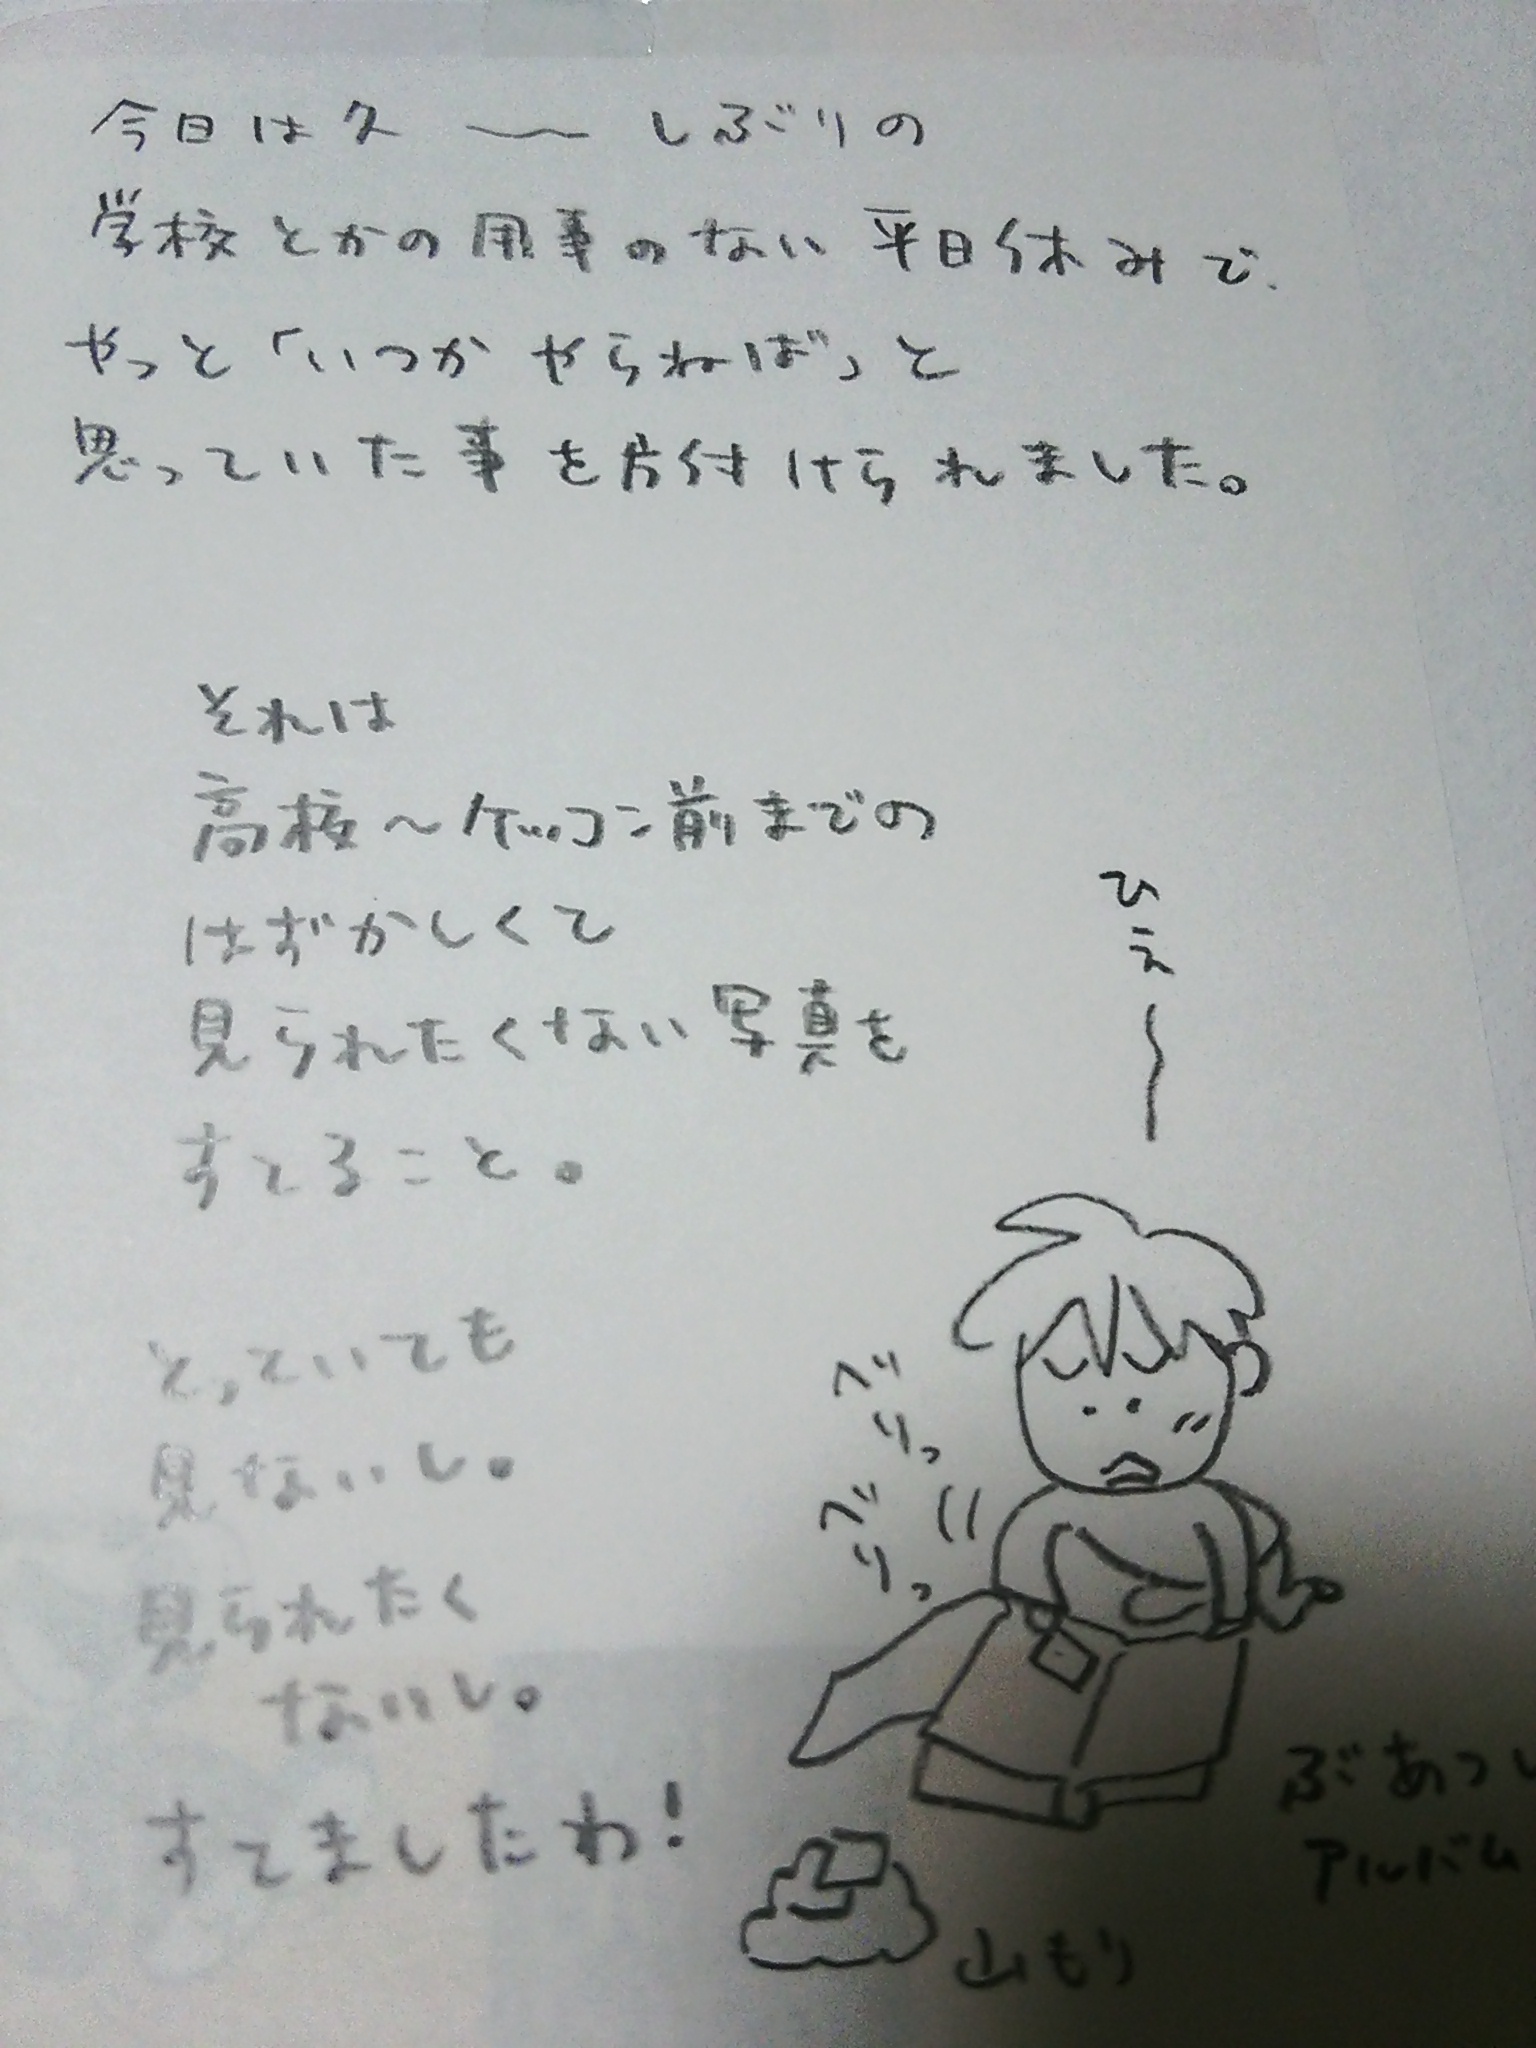 今日は久〜しぶりの
学校とかの用事のない平日休みで、
やっと「いつかやらねば」と
思っていた事を片付けられました。
それは
高校〜ケッコン前までの
はずかしくて
見られたくない写真を
すてること。
とっていても
見ないし。
見られたく
ないし。
すてましたわ!
ひえ〜
べりっ
べりっ
ぶあつい
アルバム
山もり